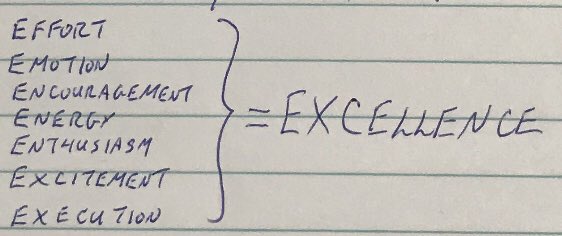 EFFORT
EMOTION
ENCOURAGEMENT
ENERGY
ENTHUSIASM
EXCITEMENT
EXECUTION
= EXCELLENCE